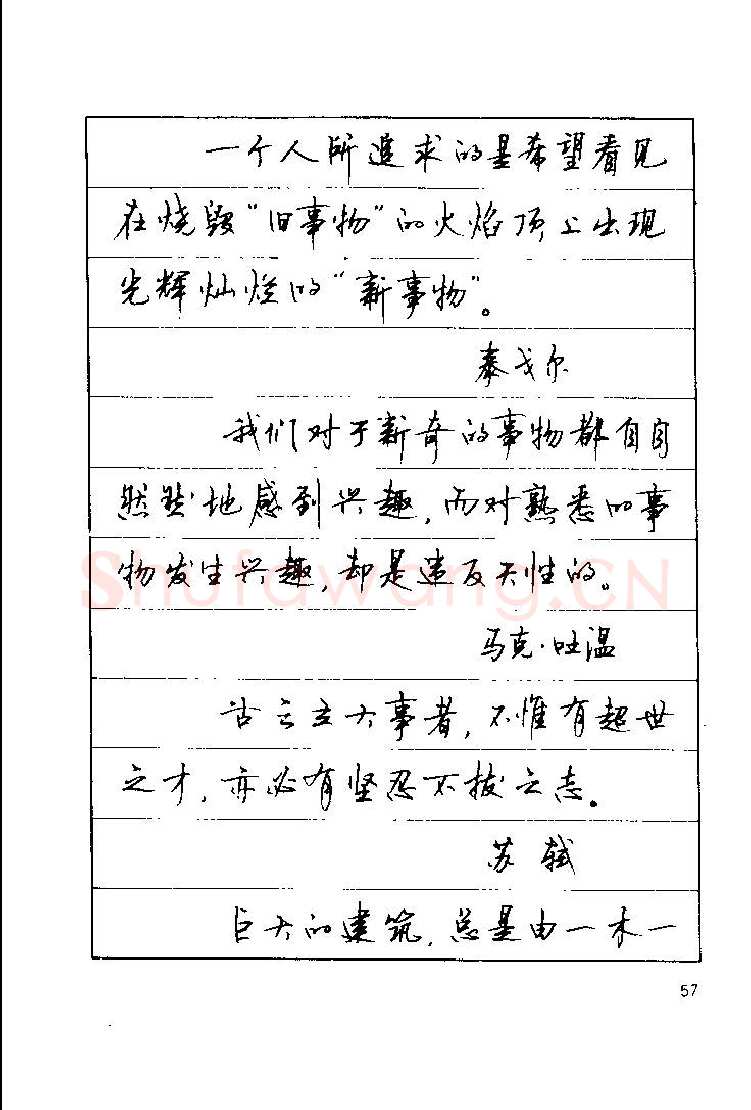 一个人所追求的是希望看见
在烧毁“旧事物”的火焰顶上出现
光辉灿烂的“新事物”。
泰戈尔
我们对于新奇的事物都自自
然然地感到兴趣，而对熟悉的事
物发生兴趣，却是违反天性的。
马克·吐温
古之立大事者，不惟有超世
之才，亦必有坚忍不拔之志。
苏轼
巨大的建筑，总是由一木一
57
Shufawang.CN